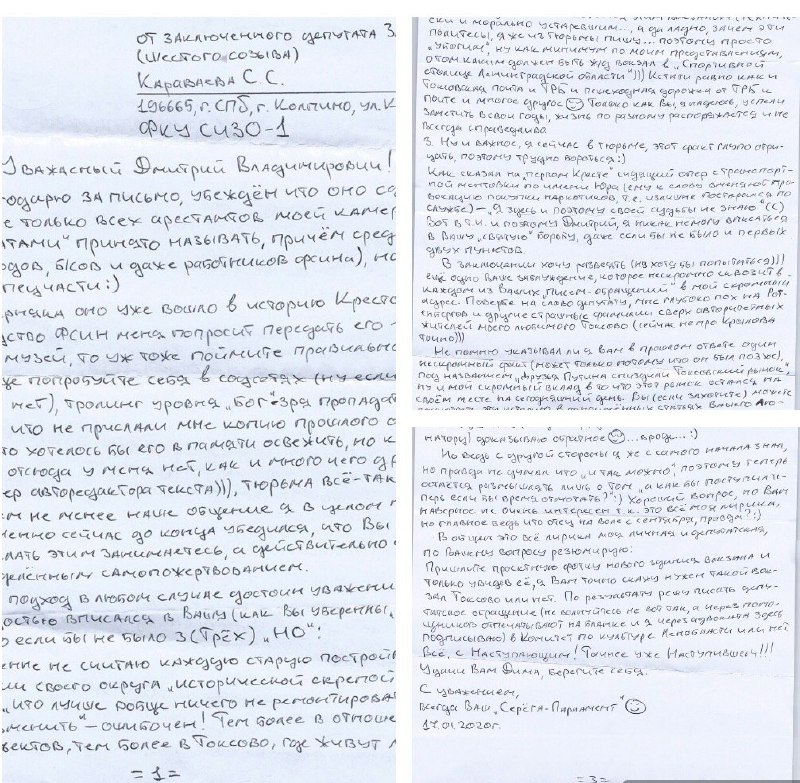 от заключенного депутата З
(шестого созыва)
Караваева С.С.
196665, г. СПб, г. Колпино, ул. К
ФКУ СИЗО-1
Уважаемый Дмитрий Владимирович!
одарю за письмо, убеждён что оно со
е только всех арестантов моей камер
тами" принято называть, причём сред
одов, б/сов и даже работников фсина), но
пецчасти :)
ерняка оно уже вошло в историю Кресто
дство ФСИН меня попросит передать его
музей, то уж тоже поймите правильно
же попробуйте себя в соцсетях (ну если
нет), тролинг уровня "Бог" зря пропада
что не прислали мне копию прошлого о
то хотелось бы его в памяти освежить, но к
отсюда у меня нет, как и много чего др
ер авторедактора текста))), тюрьма всё-так
ем не менее наше общение я в целом
менно сейчас до конца убедился, что Вы
лать этим занимаетесь, а действительно
еделённым самопожертвованием.
подход в любом случае достоин уважени
остью вписался в Вашу (как Вы уверенны,
о если бы не было 3 (Трёх) "НО":
ение не считаю каждую старую построй
ли своего округа "исторической скрепой
"что лучше вобще ничего не ремонтирова
менить" – ошибочен! Тем более в отноше
ъектов, тем более в Токсово, где живут л
=1=
ски и морально устаревшим..., а да ладно, зачем эти
политесы, я же из тюрьмы пишу... поэтому просто
"убогих", ну как минимум по моим представлениям,
о том каким должен быть ж/д вокзал в "Спортивной
столице Ленинградской области")))) Кстати равно как и
Токсовская почта и ТРБ и пешеходная дорожка от ТРБ к
почте и многое другое ☺ Только как Вы, я надеюсь, успели
заметить в свои годы, жизнь по разному распоряжается и не
всегда справедливо.
3. Ну и важное, я сейчас в тюрьме, этот факт глупо отри-
цать, поэтому трудно бороться :)
Как сказал на "первом Кресте" сидящий опер с транспорт-
ной ментовки по имени Юра (ему к слову вменяют про-
вокацию покупки наркотиков, т.е. излишне постарался по
службе) – "Я здесь и поэтому своей судьбы не знаю" (с)
Вот в т.ч. и поэтому Дмитрий, я никак не могу вписаться
в Вашу "святую" борьбу, даже если бы не было и первых
двух пунктов.
В заключении хочу развеять (ну хотя бы попытаться)))
ещё одно Ваше заблуждение, которое нескромно сквозит в
каждом из Ваших "писем-обращений" в мой скромный
адрес. Поверьте на слово депутату, мне глубоко пох на Рот-
енбергов и другие страшные фамилии сверх авторитетных
жителей моего любимого Токсово (сейчас не про Крылова
точно)))
Не помню указывал ли я Вам в прошлом ответе один
нескромный факт (может только потому что он был позже),
под названием "Друзья Путина спиздили Токсовский рынок",
ну и мой скромный вклад в то что этот рынок остался на
своём месте на сегодняшний день. Вы (если захотите) можете
натору) доказываю обратное ☺ ...вроде... :)
Но ведь с другой стороны я же с самого начала знал,
но правда не думал что "и так можно", поэтому теперь
остаётся размышлять лишь о том "а как бы поступил и
перь если бы время отмотать?" :) Хороший вопрос, но Вам
наверное не очень интересен т.к. это всё моя лирика,
но главное ведь что отец на воле с сентября, правда? :)
В общем это всё лирика моя личная и депутатская,
по Вашему вопросу резюмирую:
Пришлите проектную фотку нового здания вокзала и
только увидев её, я Вам точно скажу нужен такой вок-
зал Токсово или нет. По результату решу писать депу-
татское обращение (не волнуйтесь не вот так, а через помо-
щников отпечатывают на бланке и я через адвокатов здесь
подписываю) в Комитет по культуре Ленобласти или нет.
Всё, с Наступающим! Точнее уже Наступившем!!!
Удачи Вам Дима, берегите себя.
С уважением,
всегда Ваш "Серёга-Парламент" ☺
17.01.2020г.
=3=